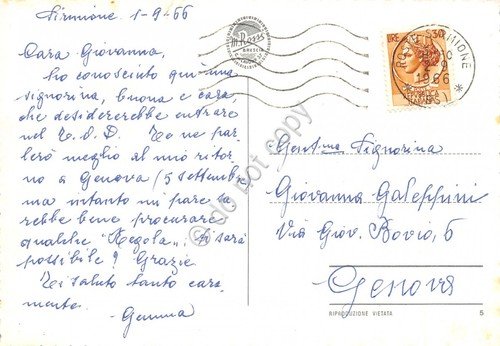 Sirmione 1-9-66
Cara Giovanna,
ho conosciuto qui una
signorina, buona e cara,
che desidererebbe entrare
nel T.O.D. Te ne par
lerò meglio al mio ritor
no a Genova (5 settembre
ma intanto mi pare sa
rebbe bene procurare
qualche "Regola". Ti sarà
possibile? Grazie.
Ti saluto tanto cara
mente.
Gemma
LIRE 30
SIRMIONE
1966
Gent.ma Signorina
Giovanna Galeppini
Via Giov. Bovio, 6
Genova
RIPRODUZIONE VIETATA
5
do not copy